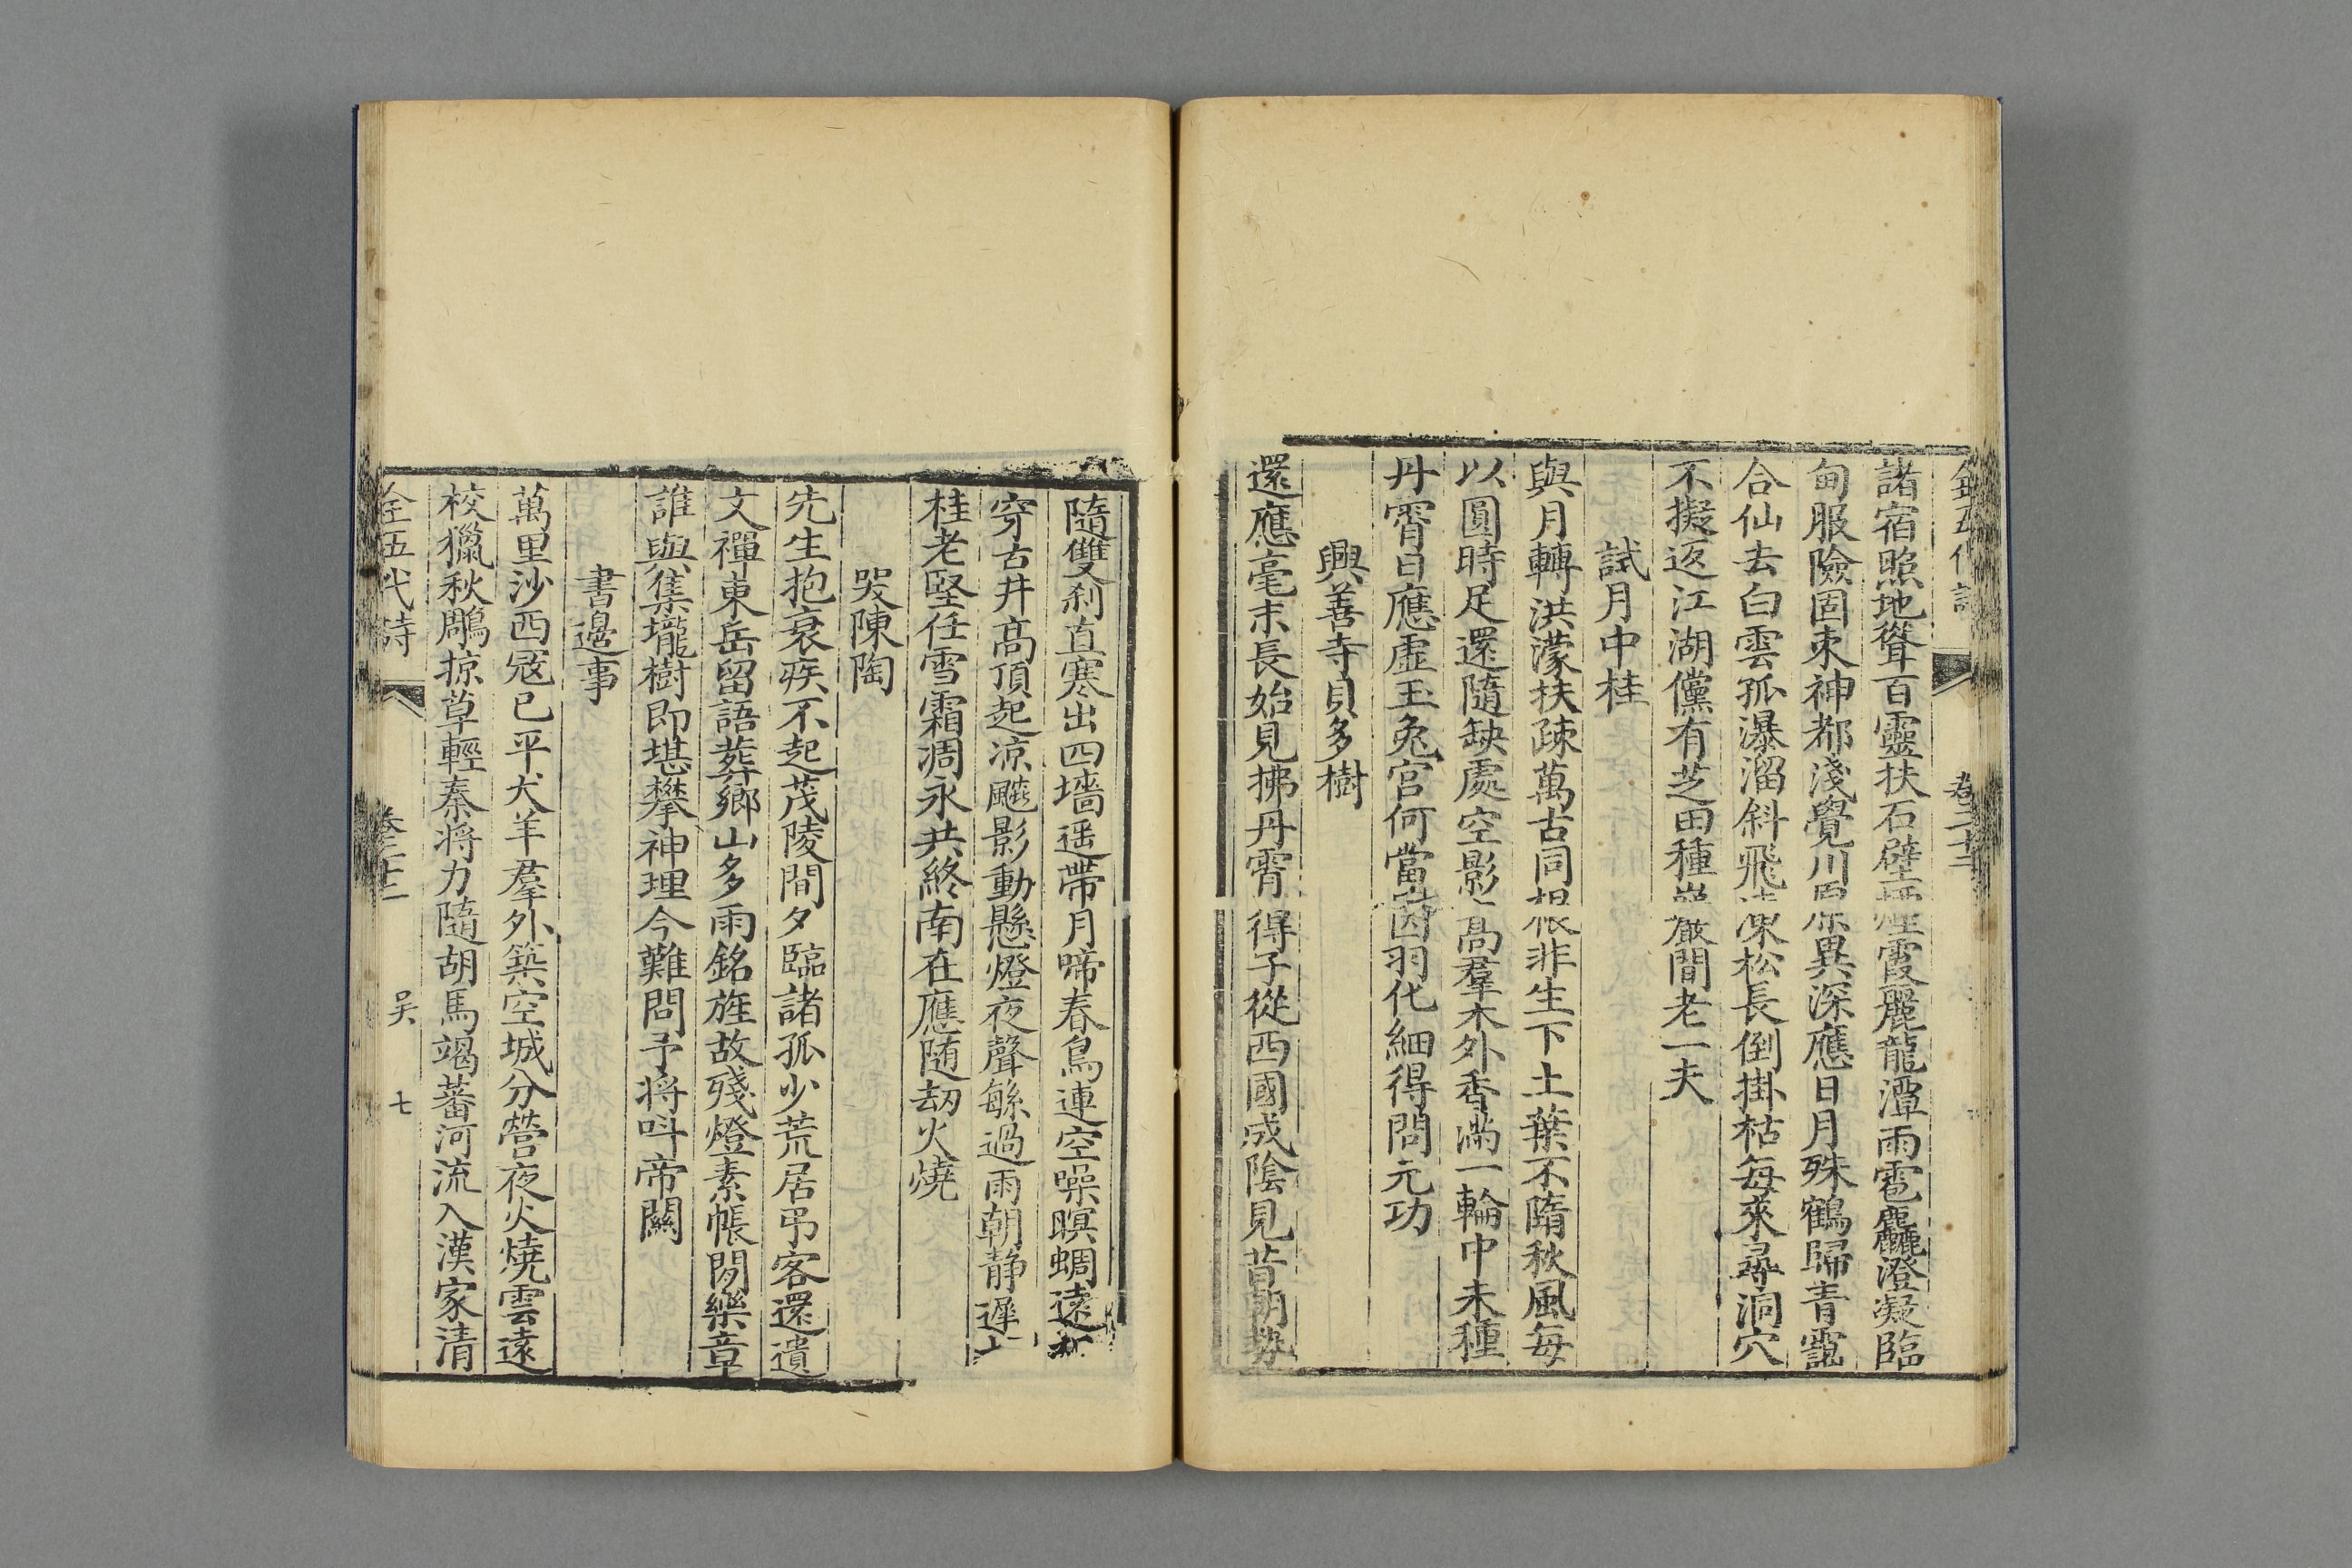 全五代詩 卷二十
諸宿照地聳百靈扶石壁煙霞麗龍潭雨雹麤澄凝臨
甸服險固束神都淺覺川原異深應日月殊鶴歸青靄
合仙去白雲孤瀑溜斜飛凍松長倒掛枯每來尋洞穴
不擬返江湖儻有芝田種巖間老一夫
試月中桂
與月轉洪濛扶疎萬古同根非生下土葉不隋秋風每
以圓時足還隨缺處空影高羣木外香滿一輪中未種
丹霄日應虛玉兔宮何當因羽化細得問元功
興善寺貝多樹
還應毫末長始見拂丹霄得子從西國成陰見昔朝勢
隨雙刹直寒出四墻遥帶月啼春鳥連空噪暝蜩遠根
穿古井高頂起凉飈影動懸燈夜聲緐過雨朝静遲
桂老堅任雪霜凋永共終南在應随刧火燒
哭陳陶
先生抱衰疾不起茂陵間夕臨諸孤少荒居弔客還遺
文禪東岳留語葬鄉山多雨銘旌故殘燈素帳閒樂章
誰與集壠樹即堪攀神理今難問予將呌帝關
書邊事
萬里沙西寇已平犬羊羣外築空城分營夜火燒雲遠
校獵秋鵰掠草輕秦將力隨胡馬竭蕃河流入漢家清
全五代詩 卷二十 吴 七